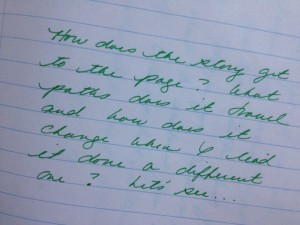 How does the story get
to the page? What
paths does it travel
and how does it
change when I lead
it down a different
one? Let's see...